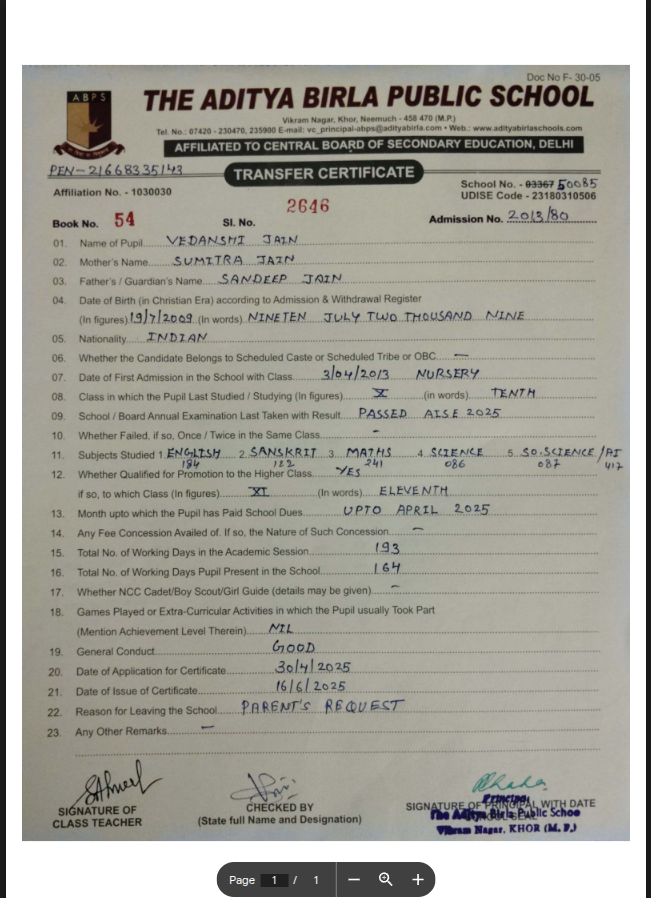 Doc No F- 30-05
ABPS
THE ADITYA BIRLA PUBLIC SCHOOL
Vikram Nagar, Khor, Neemuch - 458 470 (M.P.)
Tel. No.: 07420 - 230470, 235900 E-mail: vc_principal-abps@adityabirla.com • Web.: www.adityabirlaschools.com
AFFILIATED TO CENTRAL BOARD OF SECONDARY EDUCATION, DELHI
PEN-21668335143
TRANSFER CERTIFICATE
Affiliation No. - 1030030
School No. - 03367 50085
UDISE Code - 23180310506
Book No. 54 Sl. No. 2646 Admission No. 2013/80
01. Name of Pupil VEDANSHI JAIN
02. Mother's Name SUMITRA JAIN
03. Father's / Guardian's Name SANDEEP JAIN
04. Date of Birth (in Christian Era) according to Admission & Withdrawal Register
(In figures) 19/7/2009 (In words) NINETEN JULY TWO THOUSAND NINE
05. Nationality INDIAN
06. Whether the Candidate Belongs to Scheduled Caste or Scheduled Tribe or OBC —
07. Date of First Admission in the School with Class 3/04/2013 NURSERY
08. Class in which the Pupil Last Studied / Studying (In figures) X (in words) TENTH
09. School / Board Annual Examination Last Taken with Result PASSED AISE 2025
10. Whether Failed, if so, Once / Twice in the Same Class -
11. Subjects Studied 1. ENGLISH 2. SANSKRIT 3 MATHS 4 SCIENCE 5. SO.SCIENCE /AI
184 122 241 086 087 417
12. Whether Qualified for Promotion to the Higher Class YES
if so, to which Class (In figures) XI (In words) ELEVENTH
13. Month upto which the Pupil has Paid School Dues UPTO APRIL 2025
14. Any Fee Concession Availed of. If so, the Nature of Such Concession —
15. Total No. of Working Days in the Academic Session 193
16. Total No. of Working Days Pupil Present in the School 164
17. Whether NCC Cadet/Boy Scout/Girl Guide (details may be given) —
18. Games Played or Extra-Curricular Activities in which the Pupil usually Took Part
(Mention Achievement Level Therein) NIL
19. General Conduct GOOD
20. Date of Application for Certificate 30/4/2025
21. Date of Issue of Certificate 16/6/2025
22. Reason for Leaving the School PARENT'S REQUEST
23. Any Other Remarks —
SIGNATURE OF
CLASS TEACHER
CHECKED BY
(State full Name and Designation)
SIGNATURE OF PRINCIPAL WITH DATE
Principal
The Aditya Birla Public Schoo
Vikram Nagar, KHOR (M. P.)
Page 1 / 1